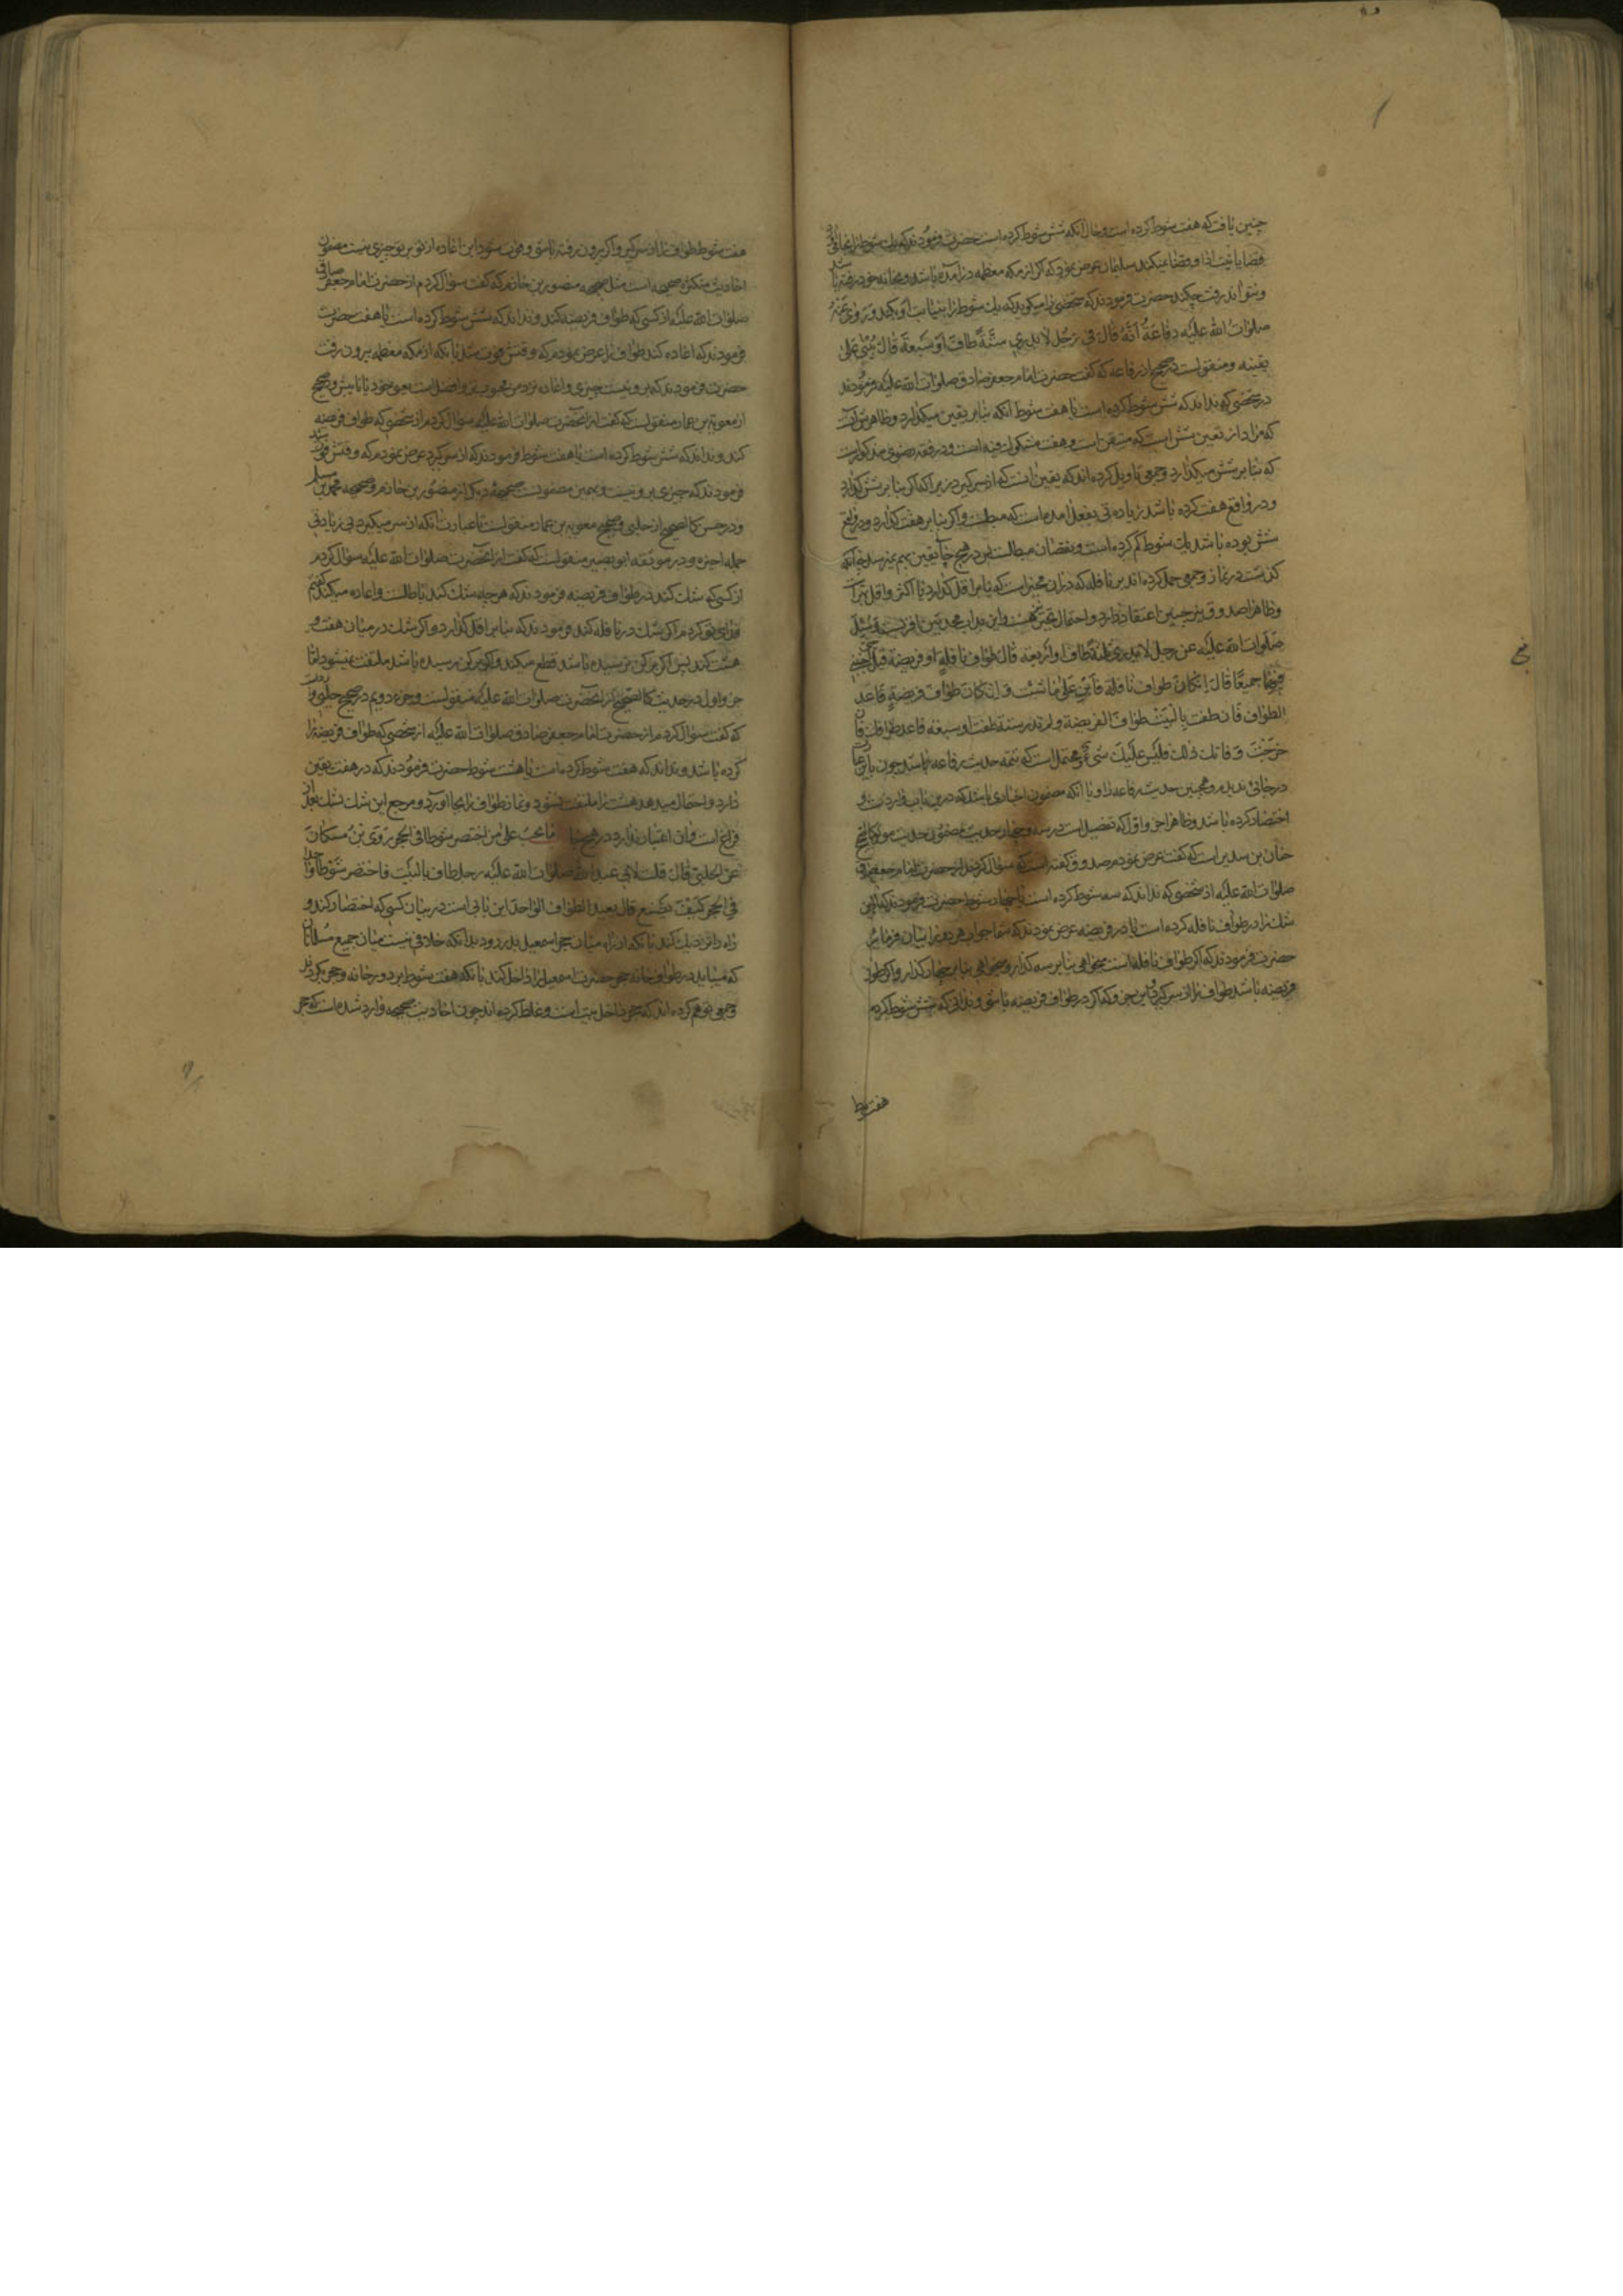 چنین یافت که هفت شوط کرده است و حال آنکه شش شوط کرده است حضرت فرمودند که یک شوط را بجا
قضا یا نیت ادا و قضا نمیکند سلیمان عرض نمود که اگر از مکه معظمه درآمده باشد و بخانه خود رفته باشد
و نتواند رفت چکند حضرت فرمودند که شخصی را میکوید که یک شوط را بنیابت او بکند و روی عنه
صلوات الله علیه رفاعة انه قال فی رجل لا یدری ستة طاف او سبعة قال یبنی علی
یقینه و منقولست در صحیح از رفاعه که گفت حضرت امام جعفر صادق صلوات الله علیه فرمودند
در شخصی که نداند که شش شوط کرده است یا هفت شوط آنکه بنا بر یقین میکذارد و ظاهرش آنست
که مراد از یقین شش است که متیقن است و هفت مشکوک فیه است و در فقه رضوی مذکور است
که بنا بر شش میکذارد و جمعی تاویل کرده اند که یقین آنست که از سر گیرد زیرا که اگر بنا بر شش گذارد
و در واقع هفت کرده باشد زیاده تی بفعل آمده است که مبطلست و اگر بنا بر هفت گذارد و در واقع
شش بوده باشد یک شوط کم کرده است و نقصان مبطلست پس در هیچ جا یقین بهم نمیرسد چنانکه
گذشت در نماز و جمعی حمل کرده اند بر نافله که در آن مخیر است که بنا بر اقل گذارد یا اکثر و اقل
و ظاهرا صدوق نیز چنین اعتقاد دارد و احتمال تخییر هست و این بداب محدثین نافر نیست و سئل
صلوات الله علیه عن رجل لا یدری ثلثة طاف او اربعة قال طواف نافلة او فریضة قیل اجبنی
فیهما جمیعا قال ان کان طواف نافلة فابن علی ما شئت و ان کان طواف فریضة فاعد
الطواف فان طفت بالبیت طواف الفریضة و لم تدر ستة طفت او سبعة فاعد طوافک فان
خرجت و فاتک ذلک فلیس علیک شیء و محتمل است که تتمه حدیث رفاعه باشد چون
در جائی ندیدم همین حدیث رفاعه را و یا آنکه مضمون اخباری باشد که درین باب وارد است و
اختصار کرده باشد و ظاهرا جزو اول که تفصیل است در سه و چهار حدیث مضمون حدیث موثق
حنان بن سدیر است که گفت عرض نمودم صدوق گفته است که سؤال کردند از حضرت امام جعفر صادق
صلوات الله علیه از شخصی که نداند که سه شوط کرده است یا چهار شوط حضرت فرمودند که این
شک را در طواف نافله کرده است یا در فریضه عرض نمودند که شما جواب هر دو را بیان فرمائید
حضرت فرمودند که اگر طواف نافله است میخواهی بنا بر سه گذار و میخواهی بنا بر چهار گذار و اگر طواف
فریضه باشد طواف را از سر گیر و این جزو که اگر در طواف فریضه باشی و ندانی که شش شوط کرده
هفت شوط
هفت شوط طواف را از سر گیر و اگر بیرون رفته باشی و فوت شود این اعاده از تو بر تو چیزی نیست مضمون
احادیث متکثره صحیحه است مثل صحیحه منصور بن حازم که گفت سؤال کردم از حضرت امام جعفر صادق
صلوات الله علیه از کسی که طواف فریضه بکند و نداند که شش شوط کرده است یا هفت حضرت
فرمودند که اعاده کند طواف را عرض نمودم که وقتش فوت شد یا آنکه از مکه معظمه بیرون رفت
حضرت فرمودند که برو نیست چیزی و اعاده نزد من محبوب تر و افضل است یعنی خود یا نایبش و در صحیح
از معویة بن عمار منقولست که گفت از آنحضرت صلوات الله علیه سؤال کردم از شخصی که طواف فریضه
کند و نداند که شش شوط کرده است یا هفت شوط فرمودند که از سر گیرد عرض نمودم که وقتش فوت شد
فرمودند که چیزی برو نیست و بهمین مضمونست صحیحه دیگر از منصور بن حازم و صحیحه محمد بن مسلم
و در حسن کالصحیح از حلبی و صحیح معویه بن عمار منقولست باعبارت آنکه از سر میگیرد بی زیادتی
جمله اخیره و در موثقه ابو بصیر منقولست که گفت از آنحضرت صلوات الله علیه سؤال کردم
از کسی که شک کند در طواف فریضه فرمودند که هر چه شک کند باطلست و اعاده میکند گفتم
فدای تو کردم اگر شک در نافله کند فرمودند که بنا بر اقل گذارد و اگر شک در میان هفت و
هشت کند پس اگر برکن نرسیده باشد قطع میکند و اگر برکن رسیده باشد ملتفت نمیشود اما
جزو اول در حدیث کالصحیح از آنحضرت صلوات الله علیه منقولست و جزء دویم در صحیح حلبی وارد است
که گفت سؤال کردم از حضرت امام جعفر صادق صلوات الله علیه از شخصی که طواف فریضه را
کرده باشد و نداند که هفت شوط کرده است یا هشت شوط حضرت فرمودند که در هفت یقین
دارد و احتمال میدهد هشت را ملتفت نشود و نماز طواف را بجا آورد و مرجع این شک بشک بعد از
فراغ است و آن اعتبار ندارد در هیچ جا ما یجب علی من اختصر شوطا فی الحجر روی بن مسکان
عن الحلبی قال قلت لابی عبد الله صلوات الله علیه رجل طاف بالبیت فاختصر شوطا واحدا
فی الحجر کیف یصنع قال یعید الطواف الواحد این بابی است در بیان کسی که اختصار کند و
راه را نزدیک کند بآنکه از راه میان حجر اسمعیل بدر رود بدانکه خلافی نیست میان جمیع مسلمانان
که میباید در طواف خانه حجر حضرت اسمعیل را داخل کند بآنکه هفت شوط بر دور خانه و حجر بگردد
و جمعی توهم کرده اند که حجر داخل بیت است و غلط کرده اند چون احادیث صحیحه وارد شده است که حجر